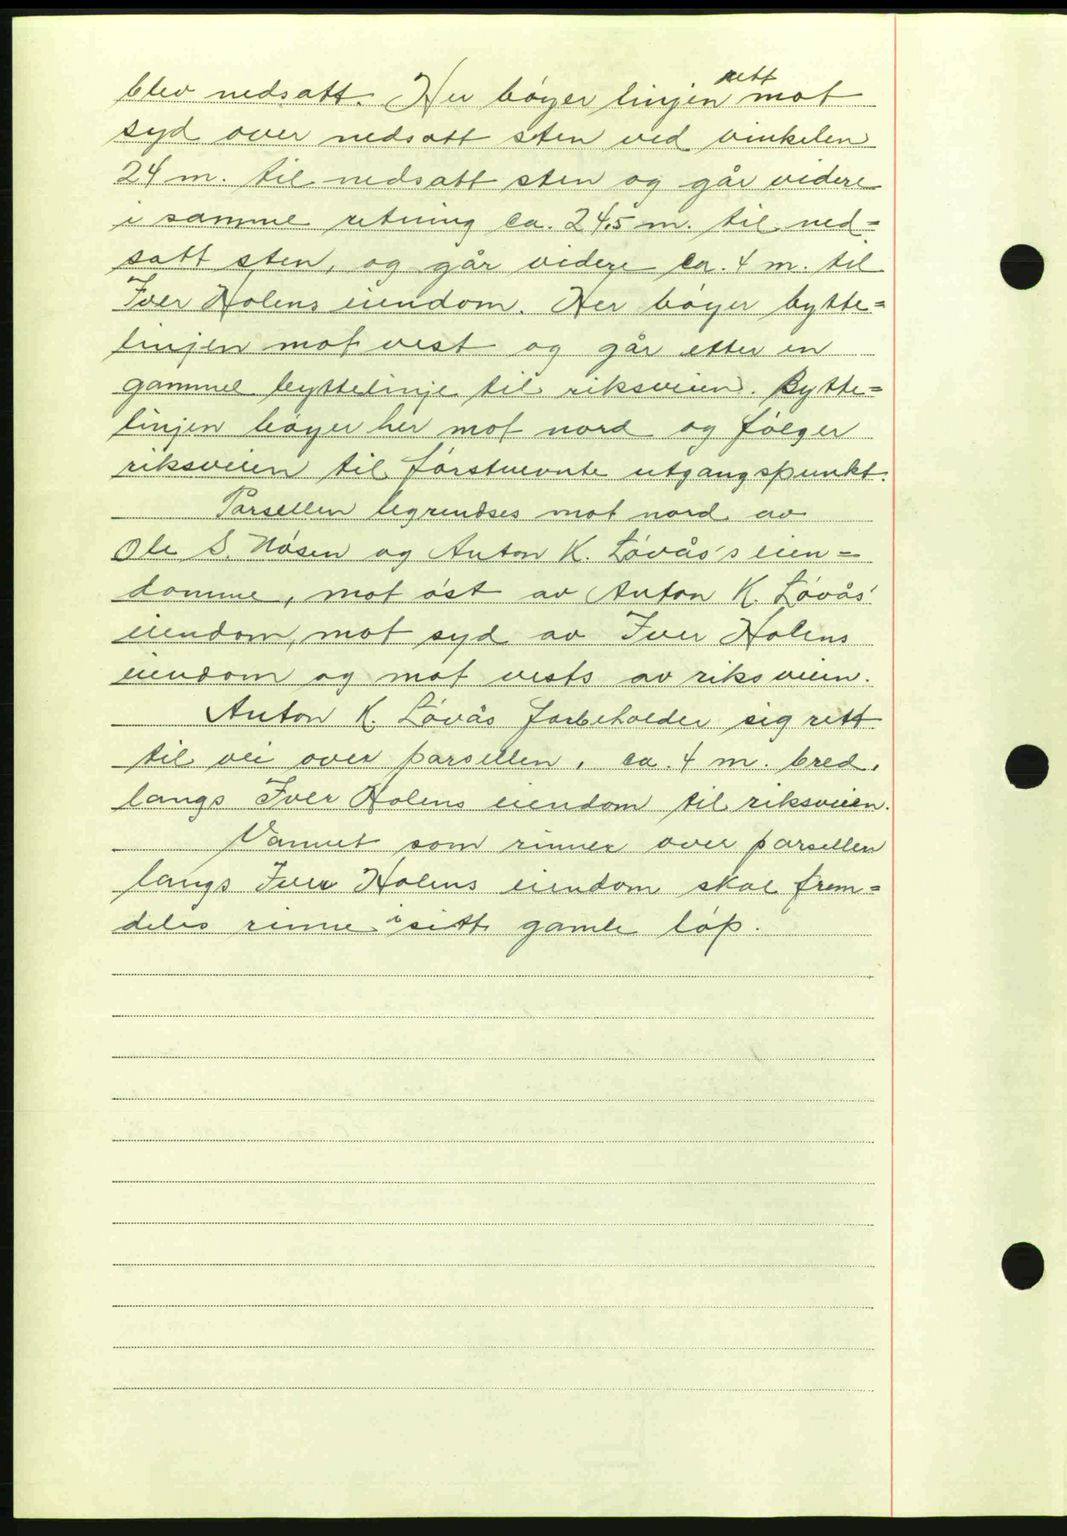 blev nedsatt. Her bøyer linjen rett mot
syd over nedsatt sten ved vinkelen
24 m. til nedsatt sten og går videre
i samme retning ca. 24,5 m. til ned=
satt sten, og går videre ca. 4 m. til
Iver Holens eiendom. Her bøyer bytte=
linjen mot vest og går etter en
gammel byttelinje til riksveien. Bytte=
linjen bøyer her mot nord og følger
riksveien til førstnevnte utgangspunkt.
Parsellen begrendses mot nord av
Ole S. Nøsen og Anton K. Løvås's eien=
domme, mot øst av Anton K. Løvås'
eiendom, mot syd av Iver Holens
eiendom og mot vests av riksveien.
Anton K. Løvås forbeholder sig rett
til vei over parsellen, ca. 4 m. bred,
langs Iver Holens eiendom til riksveien.
Vannet som rinner over parsellen
langs Iver Holens eiendom skal frem=
deles rinne i sitt gamle løp.